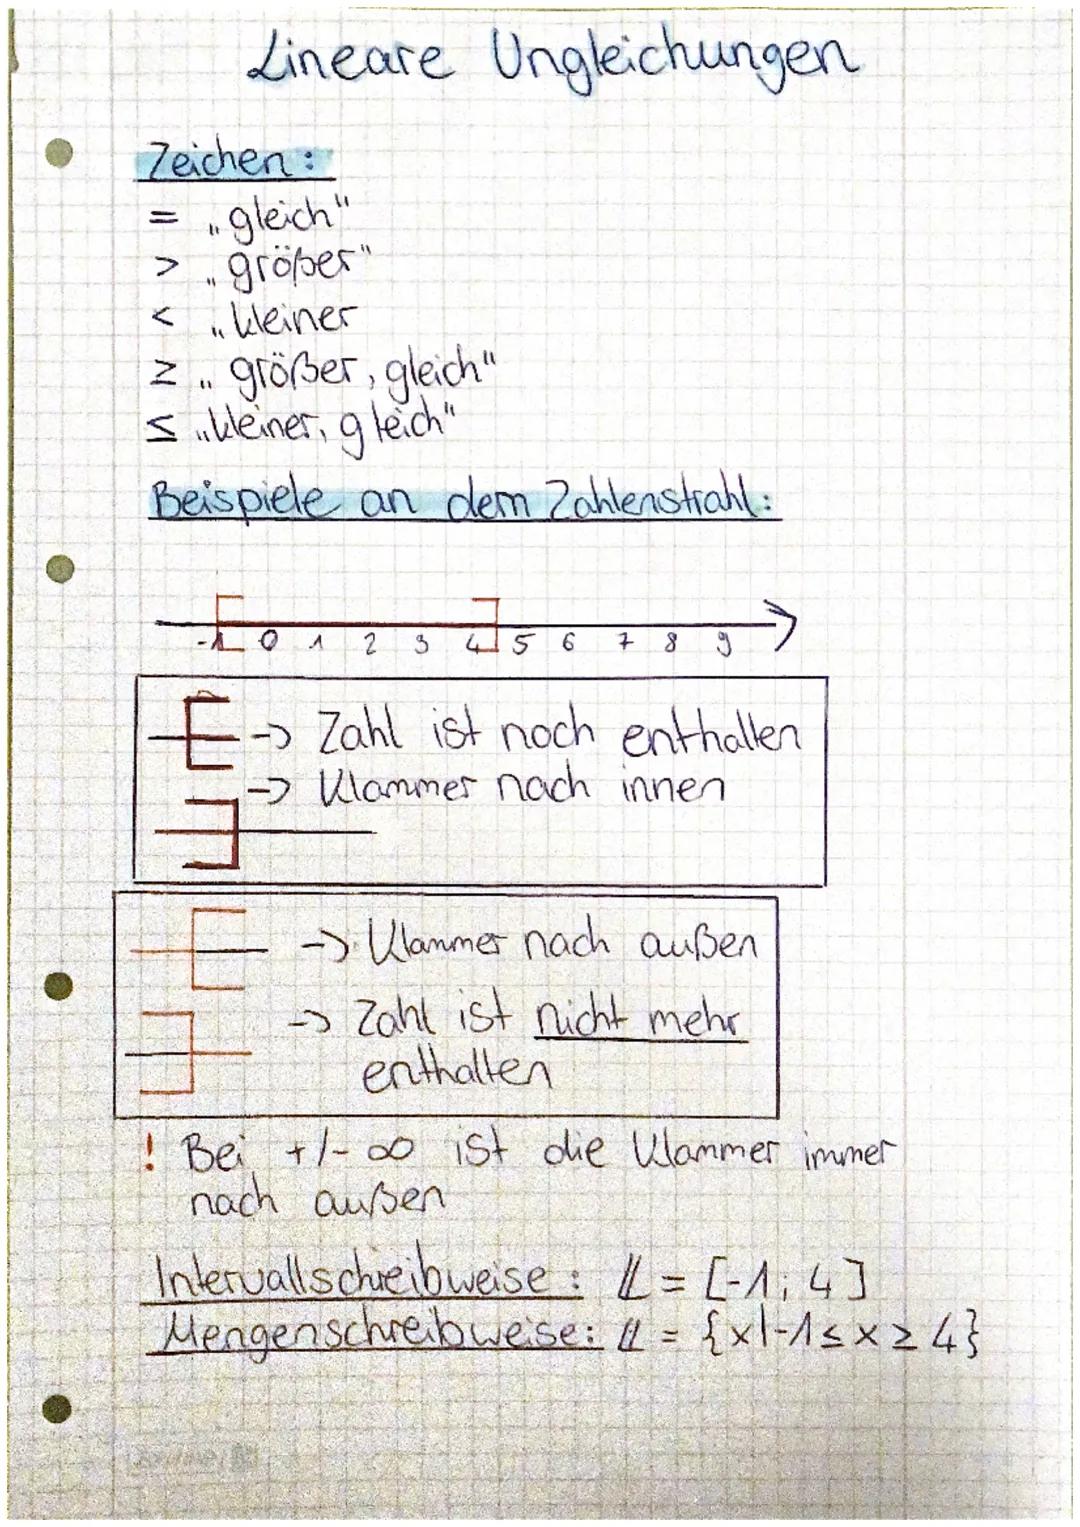 Lineare Ungleichungen
Zeichen:
= „gleich"
> „größer"
< „kleiner
≥ „größer, gleich"
≤ „kleiner, gleich"
Beispiele an dem Zahlenstrahl:
-1 0 1 2 3 4 5 6 7 8 9
-> Zahl ist noch enthalten
-> Klammer nach innen
-> Klammer nach außen
-> Zahl ist nicht mehr
enthalten
! Bei +/- ∞ ist die Klammer immer
nach außen
Intervallschreibweise: 𝕃 = [-1; 4]
Mengenschreibweise: 𝕃 = {x|-1≤x≥4}